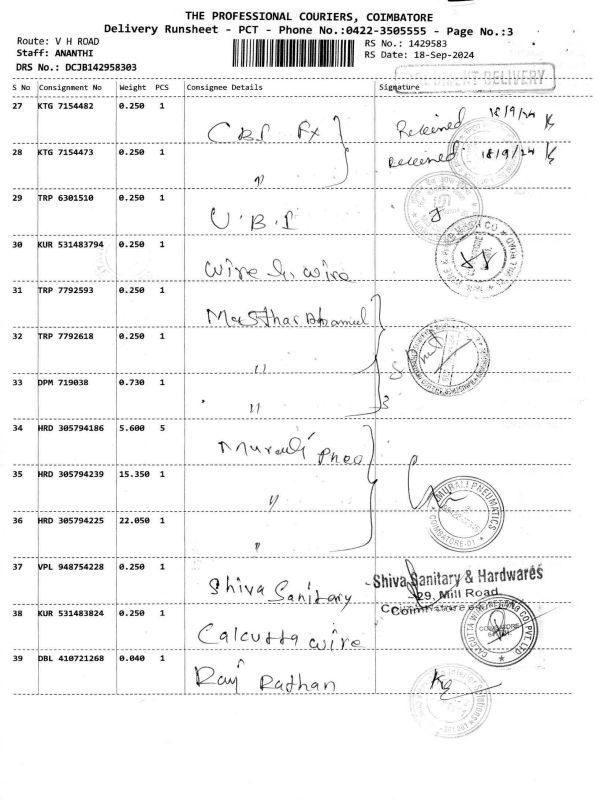 THE PROFESSIONAL COURIERS, COIMBATORE
Delivery Runsheet - PCT - Phone No.:0422-3505555 - Page No.:3
Route: V H ROAD
RS No.: 1429583
Staff: ANANTHI
RS Date: 18-Sep-2024
DRS No.: DCJB142958303
DELIVERY
S No Consignment No Weight PCS Consignee Details Signature
27 KTG 7154482 0.250 1 Received 18/9/24
28 KTG 7154473 0.250 1 " Received 18/9/24
29 TRP 6301510 0.250 1 U.B.I
30 KUR 531483794 0.250 1 wire & wire
31 TRP 7792593 0.250 1
32 TRP 7792618 0.250 1 "
33 DPM 719038 0.730 1 " 3
34 HRD 305794186 5.600 5 Murali Pneo
35 HRD 305794239 15.350 1 "
MURALI PNEUMATICS
COIMBATORE-01
36 HRD 305794225 22.050 1 "
37 VPL 948754228 0.250 1 Shiva Sanitary
Shiva Sanitary & Hardwares
29, Mill Road
Coimbatore
38 KUR 531483824 0.250 1 Calcutta wire
39 DBL 410721268 0.040 1 Raj Rathan